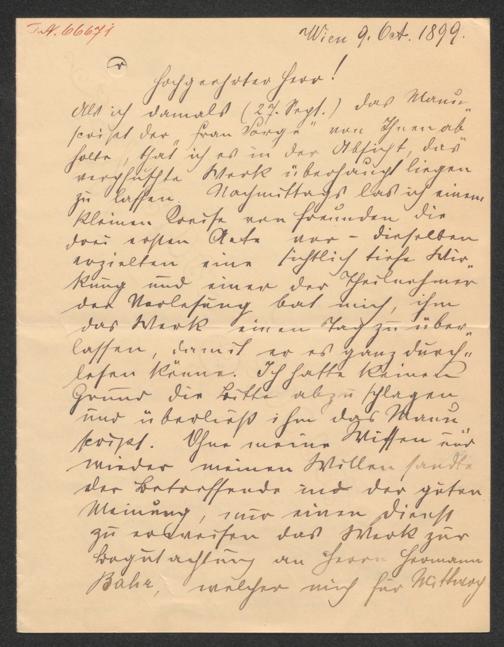 I.N. 66671
Wien 9. Oct. 1899.
Hochgeehrter Herr!
Als ich damals (27. Sept.) das Manu-
script der „Frau Sorge" von Ihnen ab
holte, that ich es in der Absicht, das
verpfuschte Werk überhaupt liegen
zu lassen. Nachmittags las ich einem
kleinen Kreise von Freunden die
drei ersten Acte vor – dieselben
erzielten eine sichtlich tiefe Wir-
kung und einer der Theilnehmer
der Vorlesung bat mich, ihm
das Werk einen Tag zu über-
lassen, damit er es ganz durch-
lesen könne. Ich hatte keinen
Grund die Bitte abzuschlagen
und überließ ihm das Manu
script. Ohne meine Wissen und
wieder meinen Willen sandte
der Betreffende in der guten
Meinung, mir einen Dienst
zu erweisen das Werk zur
Begutachtung an Herrn Hermann
Bahr, welcher mich für Mittwoch